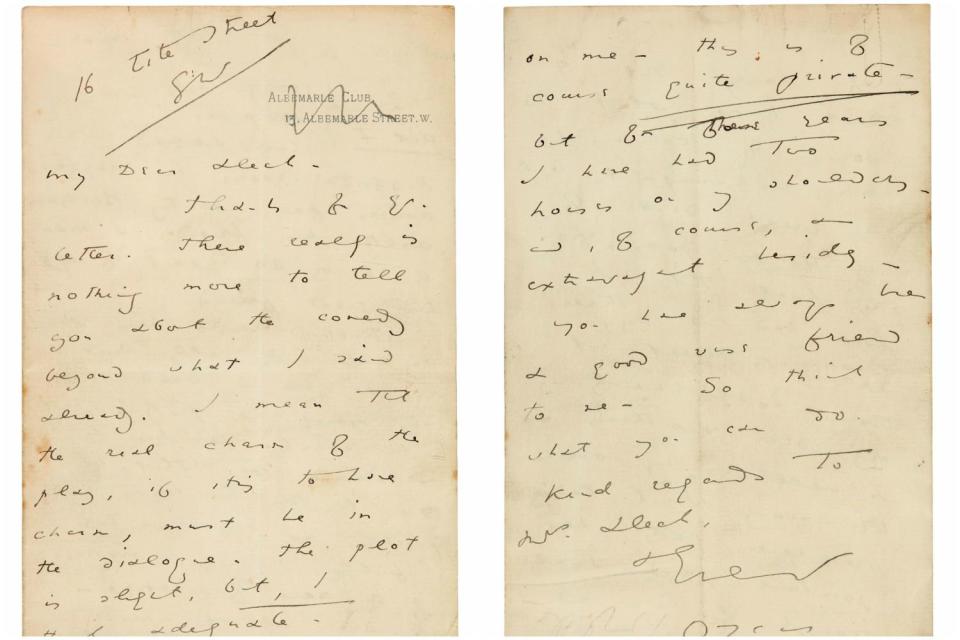 16 Tite Street
S.W.
ALBEMARLE CLUB,
13, ALBEMARLE STREET. W.
My Dear Aleck -
Thanks for yr.
letter. There really is
nothing more to tell
you about the comedy
beyond what I said
already. I mean that
the real charm of the
play, if it is to have
charm, must be in
the dialogue. The plot
is slight, but, I
adequate -
on me - this is of
course quite private -
but for these years
I have had two
houses on my shoulders -
and, of course, am
extravagant besides -
you have always been
a good wise friend
to me - So think
what you can do.
Kind regards to
Mrs. Aleck,
Ever
Oscar